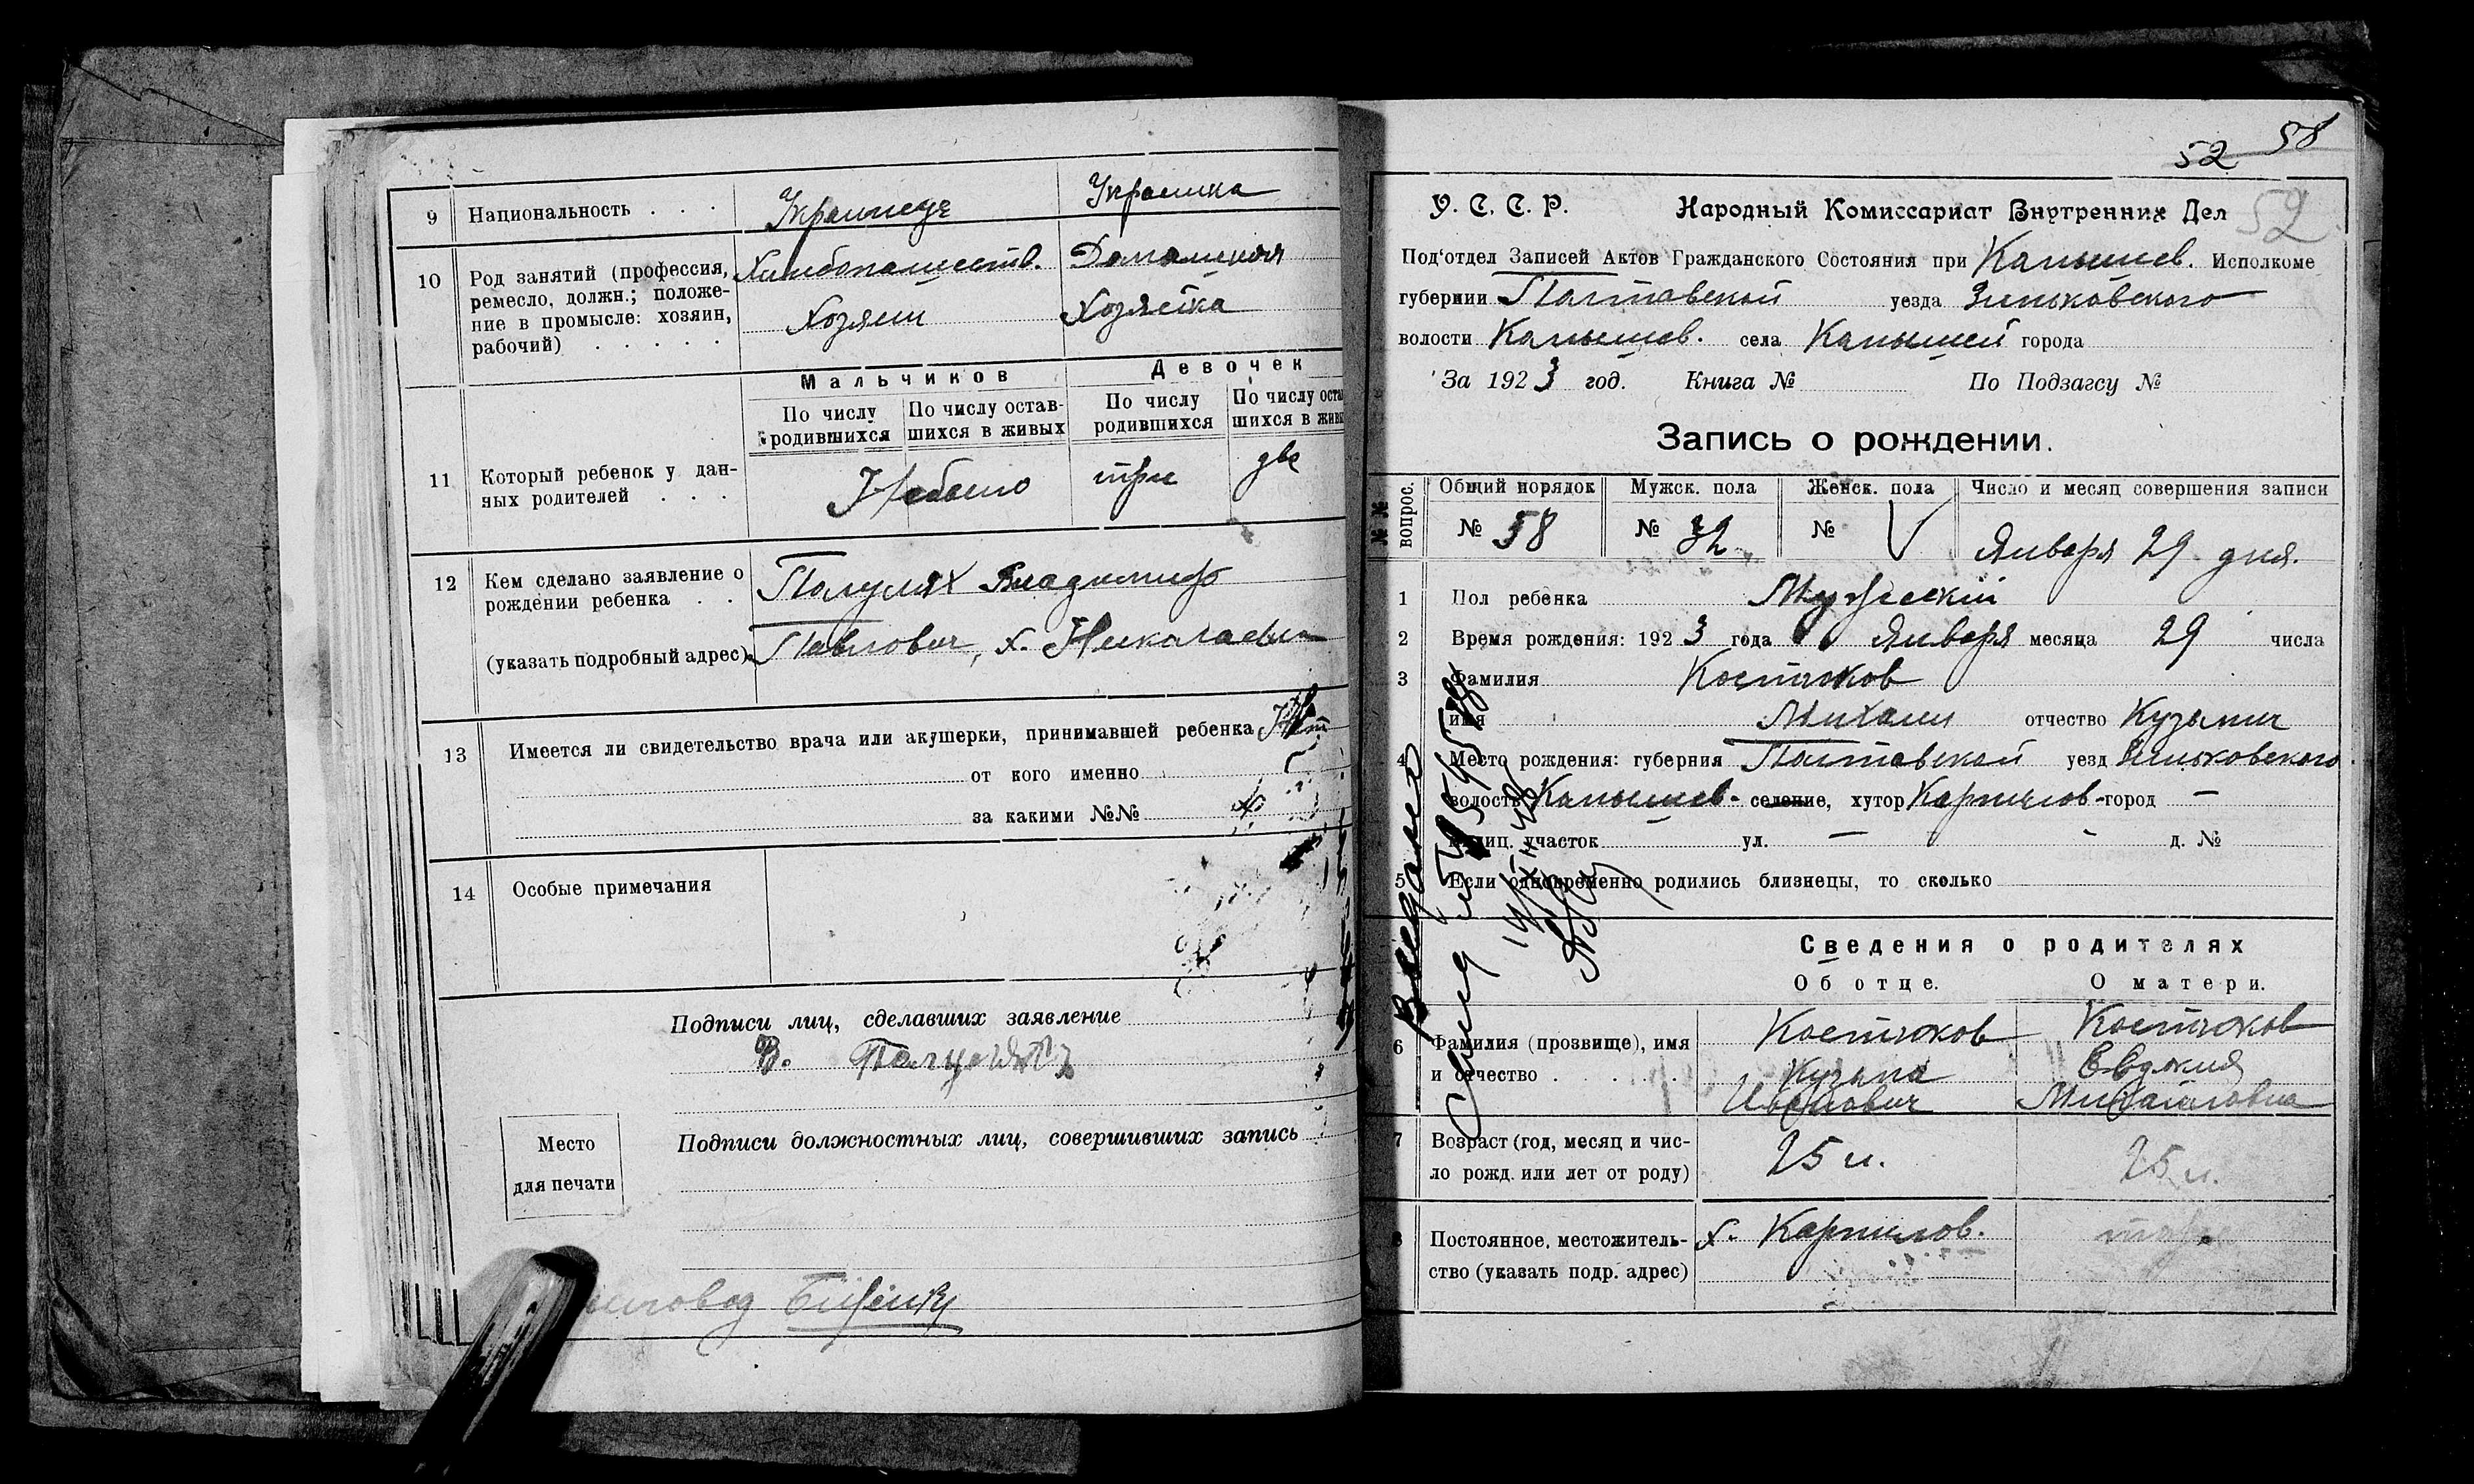 9 Национальность . . . Украинец Украинка
10 Род занятий (профессия, Хлебопашеств. Домашняя
ремесло, должн.; положе-
ние в промысле: хозяин, Хозяин Хозяйка
рабочий) . . . . .
Мальчиков Девочек
По числу По числу остав- По числу По числу оста
родившихся шихся в живых родившихся шихся в живы
11 Который ребенок у дан- Небыло три две
ных родителей . . .
12 Кем сделано заявление о Владимир
рождении ребенка . .
(указать подробный адрес) Павлович, х.
13 Имеется ли свидетельство врача или акушерки, принимавшей ребенка Нет
от кого именно
за какими №№
14 Особые примечания
Подписи лиц, сделавших заявление
В.
Место
для печати
Подписи должностных лиц, совершивших запись
52 58
52
У. С. С. Р. Народный Комиссариат Внутренних Дел
Под'отдел Записей Актов Гражданского Состояния при Камышев. Исполкоме
губернии Полтавской уезда Зиньковского
волости Камышев. села Камышей города
За 1923 год. Книга № По Подзагсу №
Запись о рождении.
№№ вопрос. Общий порядок Мужск. пола Женск. пола Число и месяц совершения записи
№ 58 № 32 № Января 29 дня.
1 Пол ребенка Мужеский
2 Время рождения: 1923 года Января месяца 29 числа
3 Фамилия Костюков
имя Михаил отчество Кузьмич
4 Место рождения: губерния Полтавской уезд Зиньковского
волость Камышев- селение, хутор Карпилов-город —
милиц. участок ул. — д. №
5 Если одновременно родились близнецы, то сколько
Сведения о родителях
Об отце. О матери.
6 Фамилия (прозвище), имя Костюков Костюков
и отчество . . . . Кузьма Евдокия
Михайловна
7 Возраст (год, месяц и чис- 25 л. 25 л.
ло рожд. или лет от роду)
8 Постоянное местожитель- х. Карпилов.
ство (указать подр. адрес)